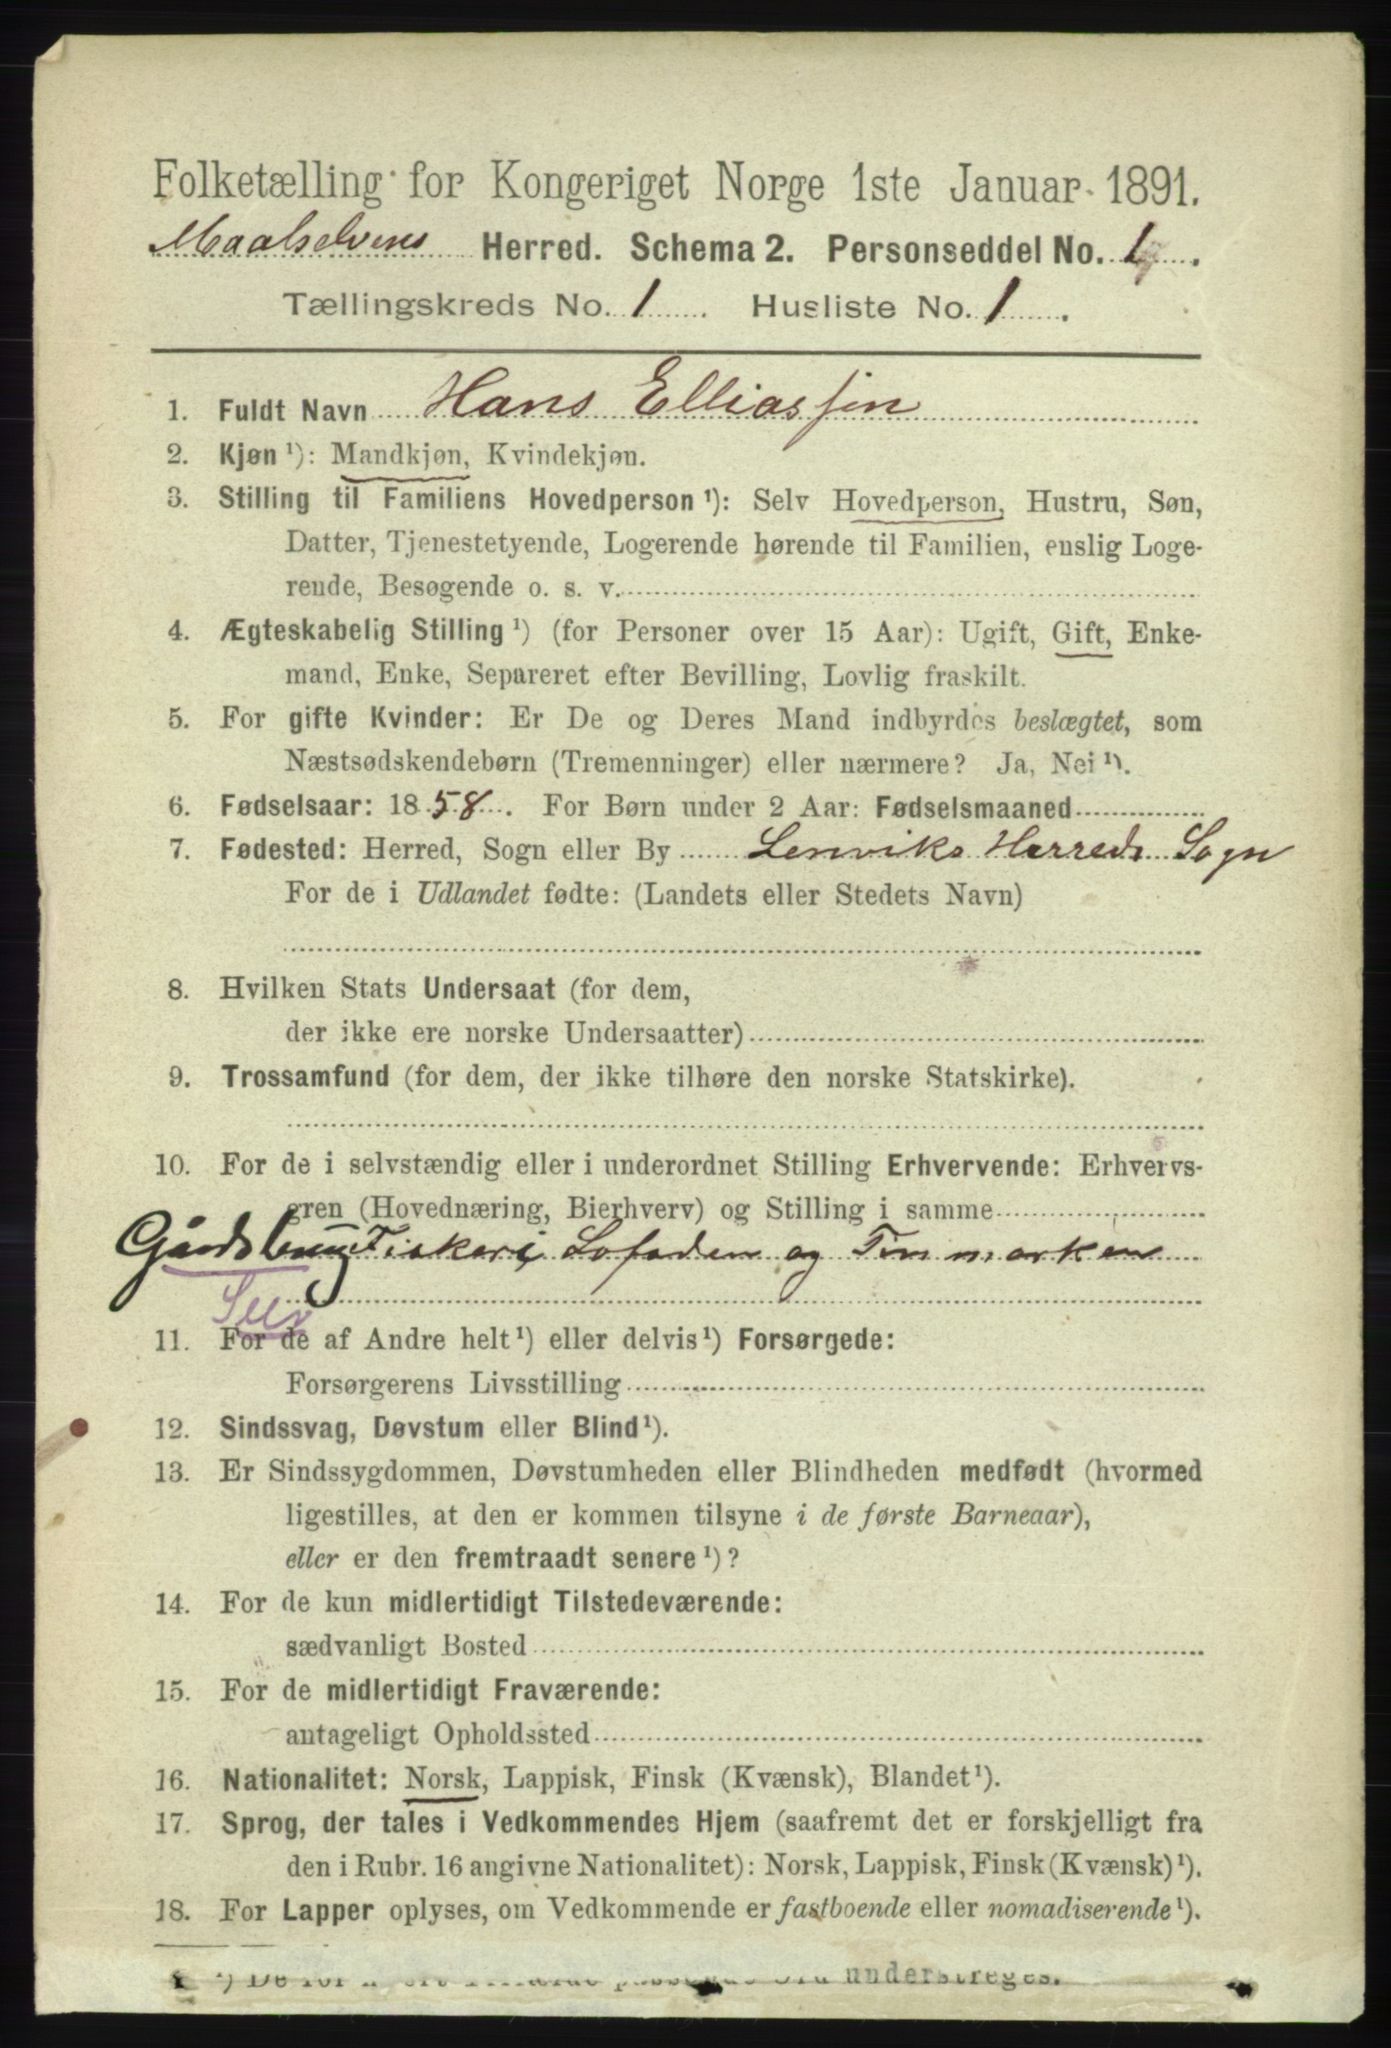 Folketælling for Kongeriget Norge 1ste Januar 1891.
Maalselvens Herred. Schema 2. Personseddel No. 1
Tællingskreds No. 1 Husliste No. 1.
1. Fuldt Navn Hans Elliassen
2. Kjøn ¹): Mandkjøn, Kvindekjøn.
3. Stilling til Familiens Hovedperson ¹): Selv Hovedperson, Hustru, Søn,
Datter, Tjenestetyende, Logerende hørende til Familien, enslig Loge-
rende, Besøgende o. s. v.
4. Ægteskabelig Stilling ¹) (for Personer over 15 Aar): Ugift, Gift, Enke-
mand, Enke, Separeret efter Bevilling, Lovlig fraskilt.
5. For gifte Kvinder: Er De og Deres Mand indbyrdes beslægtet, som
Næstsødskendebørn (Tremenninger) eller nærmere? Ja, Nei ¹).
6. Fødselsaar: 1858. For Børn under 2 Aar: Fødselsmaaned
7. Fødested: Herred, Sogn eller By Lenviks Herreds Sogn
For de i Udlandet fødte: (Landets eller Stedets Navn)
8. Hvilken Stats Undersaat (for dem,
der ikke ere norske Undersaatter)
9. Trossamfund (for dem, der ikke tilhøre den norske Statskirke).
10. For de i selvstændig eller i underordnet Stilling Erhvervende: Erhvervs-
gren (Hovednæring, Bierhverv) og Stilling i samme
Gårdsbrug Fisker i Lofoden og Finmarken
Selv
11. For de af Andre helt ¹) eller delvis ¹) Forsørgede:
Forsørgerens Livsstilling
12. Sindssvag, Døvstum eller Blind ¹).
13. Er Sindssygdommen, Døvstumheden eller Blindheden medfødt (hvormed
ligestilles, at den er kommen tilsyne i de første Barneaar),
eller er den fremtraadt senere ¹)?
14. For de kun midlertidigt Tilstedeværende:
sædvanligt Bosted
15. For de midlertidigt Fraværende:
antageligt Opholdssted
16. Nationalitet: Norsk, Lappisk, Finsk (Kvænsk), Blandet ¹).
17. Sprog, der tales i Vedkommendes Hjem (saafremt det er forskjelligt fra
den i Rubr. 16 angivne Nationalitet): Norsk, Lappisk, Finsk (Kvænsk) ¹).
18. For Lapper oplyses, om Vedkommende er fastboende eller nomadiserende ¹).
¹) De understreges.